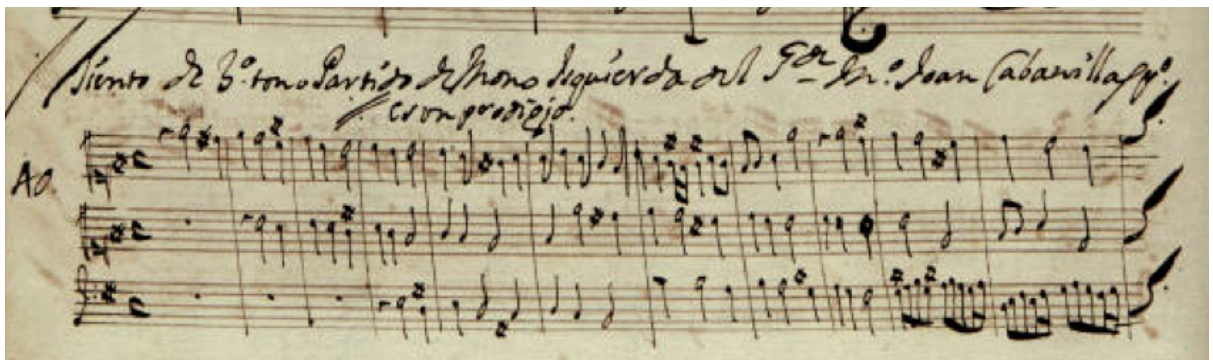 tiento de 3º. tono Partido de Mono Isquierda del Gde. Mº. Joan Cabanillas
es un prodigio.
A3.